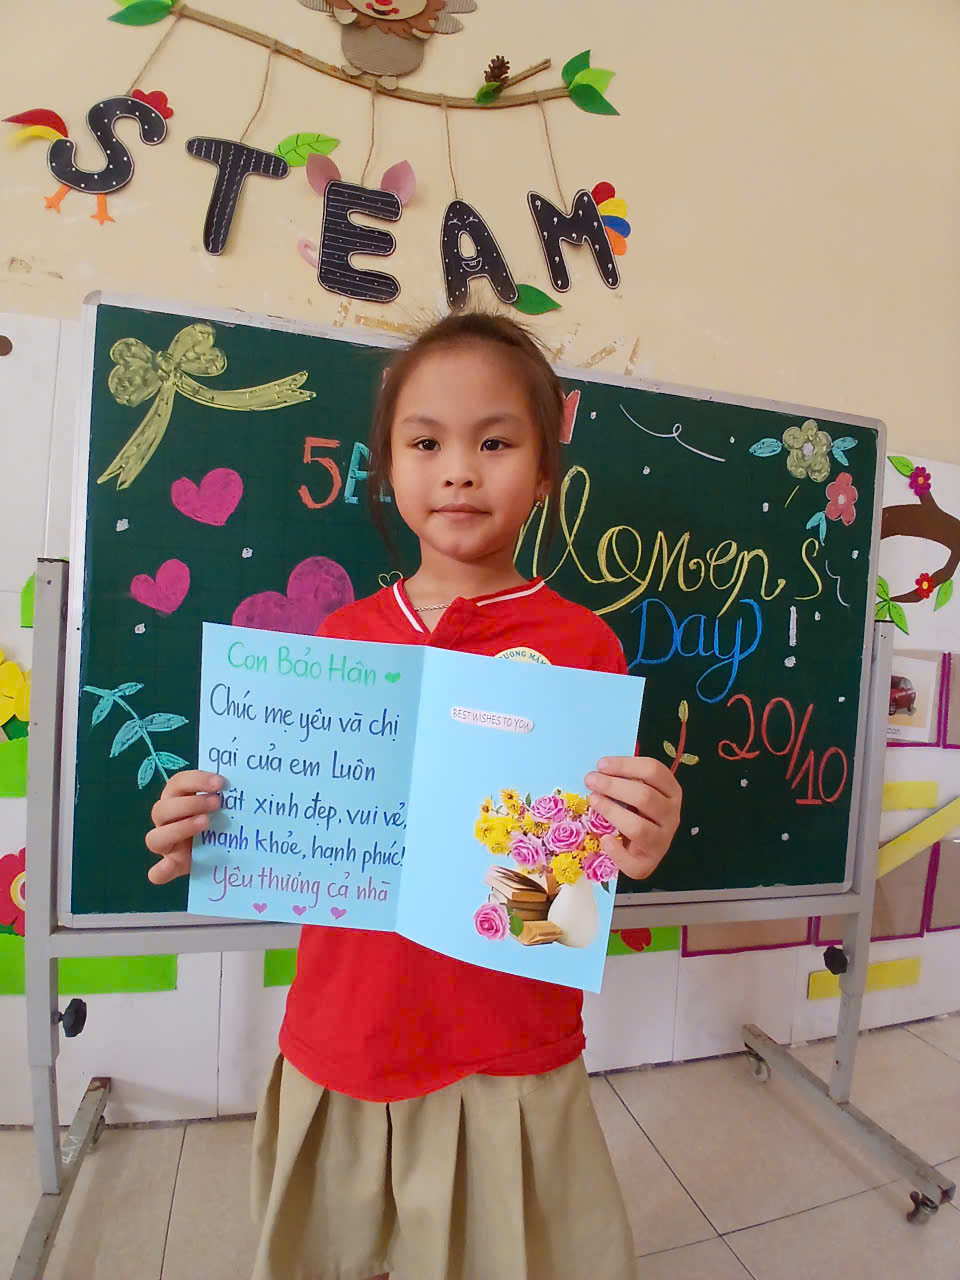 STEAM
5E
Women's
Day!
20/10
ƯỜNG MẦM
Con Bảo Hân
Chúc mẹ yêu và chị
gái của em Luôn
xinh đẹp, vui vẻ,
mạnh khỏe, hạnh phúc!
Yêu thương cả nhà
BEST WISHES TO YOU